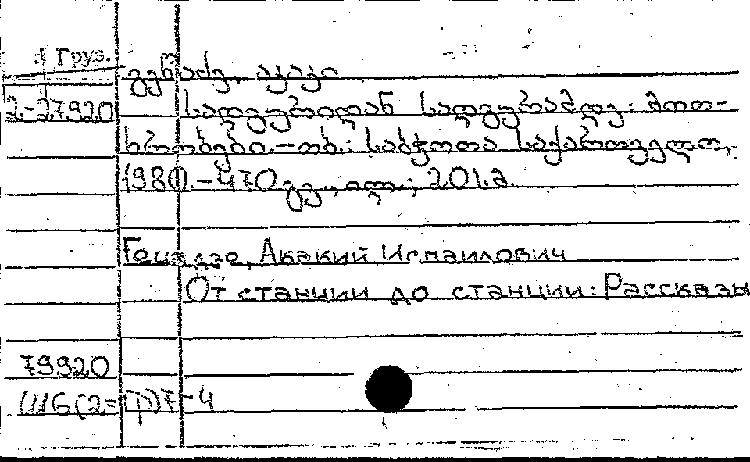 Груз.
გეწაძე, აკაკი
2-27920
სადგურიდან სადგურამდე: მოთ-
ხრობები.-თბ.: საბჭოთა საქართველო,
1980.-470გვ., ილ.; 20სმ
Гецадзе, Акакий Исмаилович
От станции до станции: Рассказы
79920